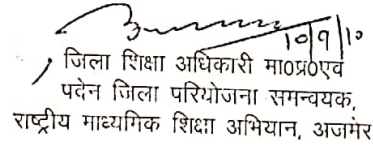 10/9/10
जिला शिक्षा अधिकारी मा०प्र०एवं
पदेन जिला परियोजना समन्वयक,
राष्ट्रीय माध्यमिक शिक्षा अभियान, अजमेर